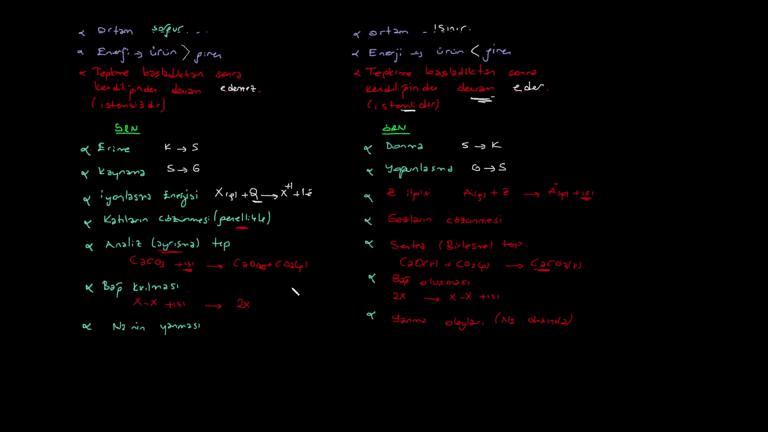 ∝ Ortam soğur...
∝ Enerji → ürün > giren
∝ Tepkime başladıktan sonra
kendiliğinden devam edemez.
(istemsizdir)
ÖRN
∝ Erime K → S
∝ Kaynama S → G
∝ iyonlaşma Enerjisi X(g) + Q → X⁺¹ + 1e⁻
∝ Katıların çözünmesi (genellikle)
∝ Analiz (ayrışma) tep
CaCO3 + ısı → CaO(k) + CO2(g)
∝ Bağ kırılması
X-X + ısı → 2X
∝ N2 nin yanması
∝ Ortam .. ısınır.
∝ Enerji → ürün < giren
∝ Tepkime başladıktan sonra
kendiliğinden devam eder.
(istemlidir)
ÖRN
∝ Donma S → K
∝ Yoğunlaşma G → S
∝ E ilgisi A(g) + e → A⁻(g) + ısı
∝ Gazların çözünmesi
∝ Sentez (Birleşme) tep.
CaO(k) + CO2(g) → CaCO3(k)
∝ Bağ oluşması
2X → X-X + ısı
∝ Yanma olayları (N2 dışında)